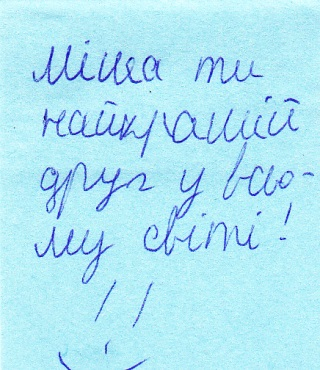 Міша ти
найкраший
друг у всьо-
му світі!